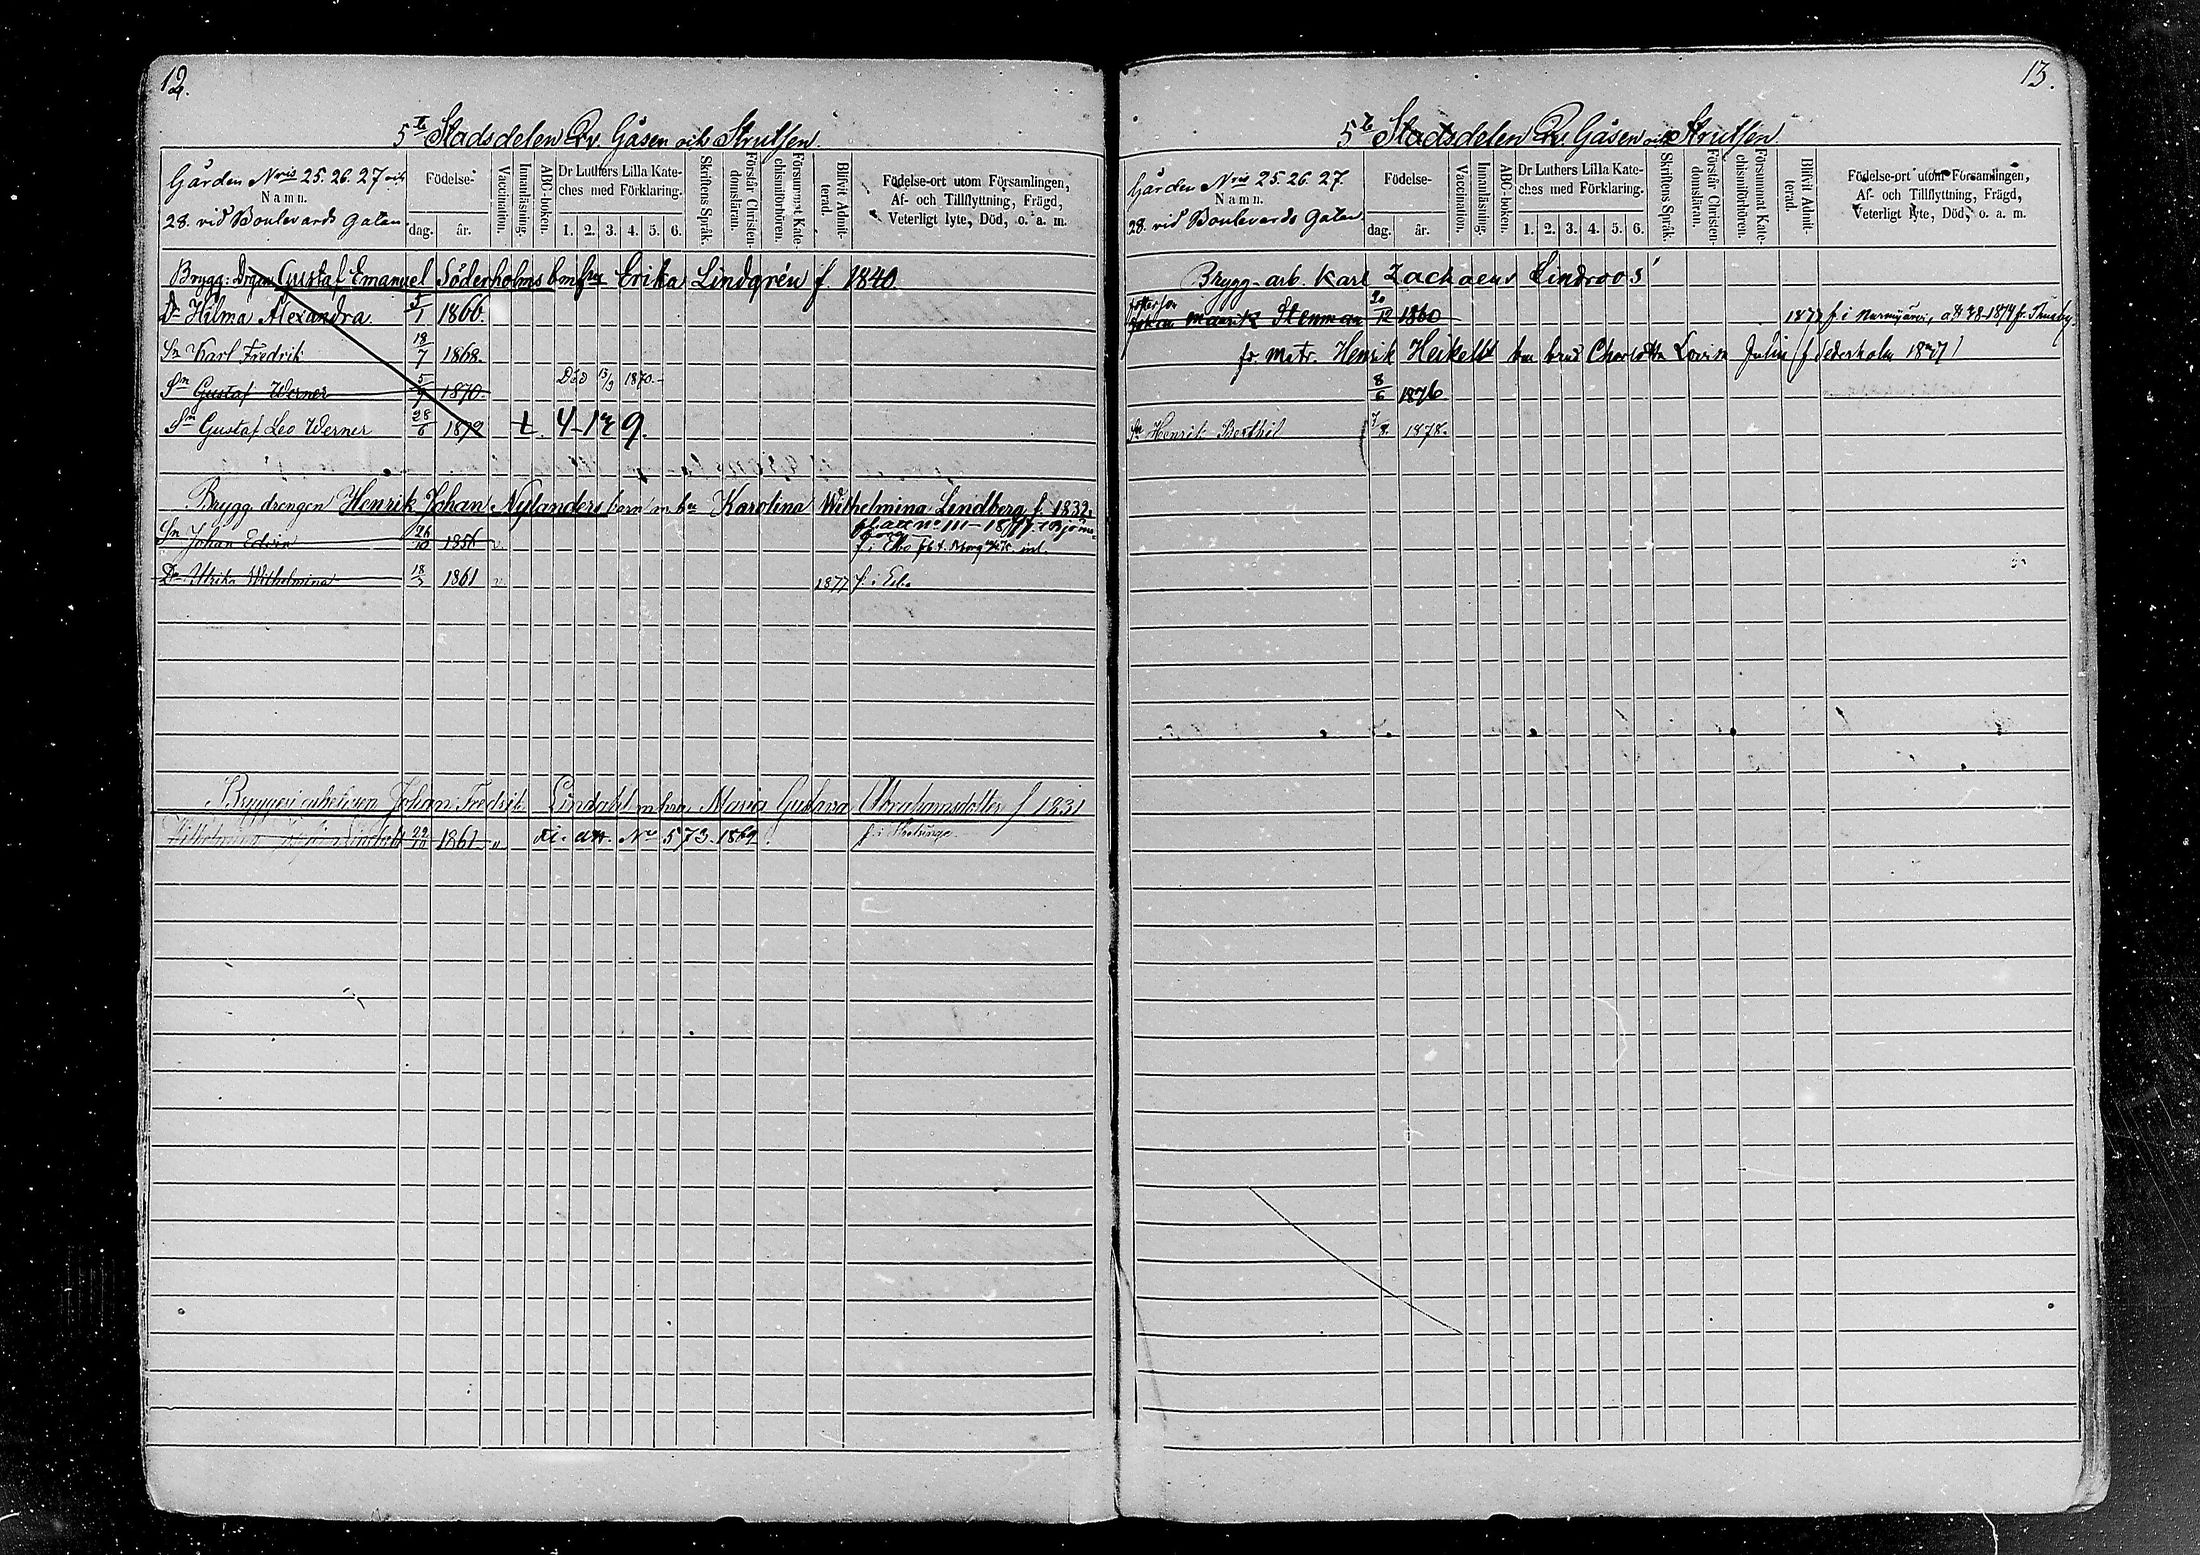 12.
5te Stadsdelen Qv. Gåsen och Strutsen.
Gården Nris 25. 26. 27 och
Namn.
28. vid Boulevards gatan
Födelse-
dag. år.
Vaccination.
Innanläsning.
ABC-boken.
Dr Luthers Lilla Kate-
ches med Förklaring.
1. 2. 3. 4. 5. 6.
Skriftens Språk.
Förstår Christen-
domsläran.
Försummat Kate-
chismiförhören.
Blifvit Admit-
terad.
Födelse-ort utom Församlingen,
Af- och Tillflyttning, Frägd,
Veterligt lyte, Död, o. a. m.
Brygg: Drgen Gustaf Emanuel Söderholms barn m hu Erika Lindgrén f. 1840
Dr Hilma Alexandra 5/1 1866.
Sn Karl Fredrik 18/7 1868.
Sn Gustaf Werner 5/9 1870. Död 13/9 1870.-
Sn Gustaf Leo Werner 28/6 1872 t. 4-129.
Brygg drengen Henrik Johan Nylanders barn m hu Karolina Wilhelmina Lindberg f. 1832.
att No 111-1877
Sn Johan Edvin 26/10 1856 v. f. i Esbo
Dr Ulrika Wilhelmina 18/3 1861 v. 1877 f. i Esbo
Bryggeri arbetaren Johan Fredrik Lindahl m hu Maria Gustava Abrahamsdotter f 1831
Wilhelmina 22/10 1861 v att. No 573. 1869.
13.
5te Stadsdelen Qv. Gåsen och Strutsen
Gården Nris 25. 26. 27.
Namn.
28. vid Boulevards gatan
Födelse-
dag. år.
Vaccination.
Innanläsning.
ABC-boken.
Dr Luthers Lilla Kate-
ches med Förklaring.
1. 2. 3. 4. 5. 6.
Skriftens Språk.
Förstår Christen-
domsläran.
Försummat Kate-
chismiförhören.
Blifvit Admit-
terad.
Födelse-ort utom Församlingen,
Af- och Tillflyttning, Frägd,
Veterligt lyte, Död, o. a. m.
Brygg-arb. Karl Zachaeus Lindroos'
Johan Maurik Stenman 20/12 1860 1877 f. i Nurmijärvi, 1874 fr. Thusby
fr. matr. Henrik Heikell Charlotta Lovisa Julin
8/6 1876
Sn Henrik Berthil 7/8. 1878.